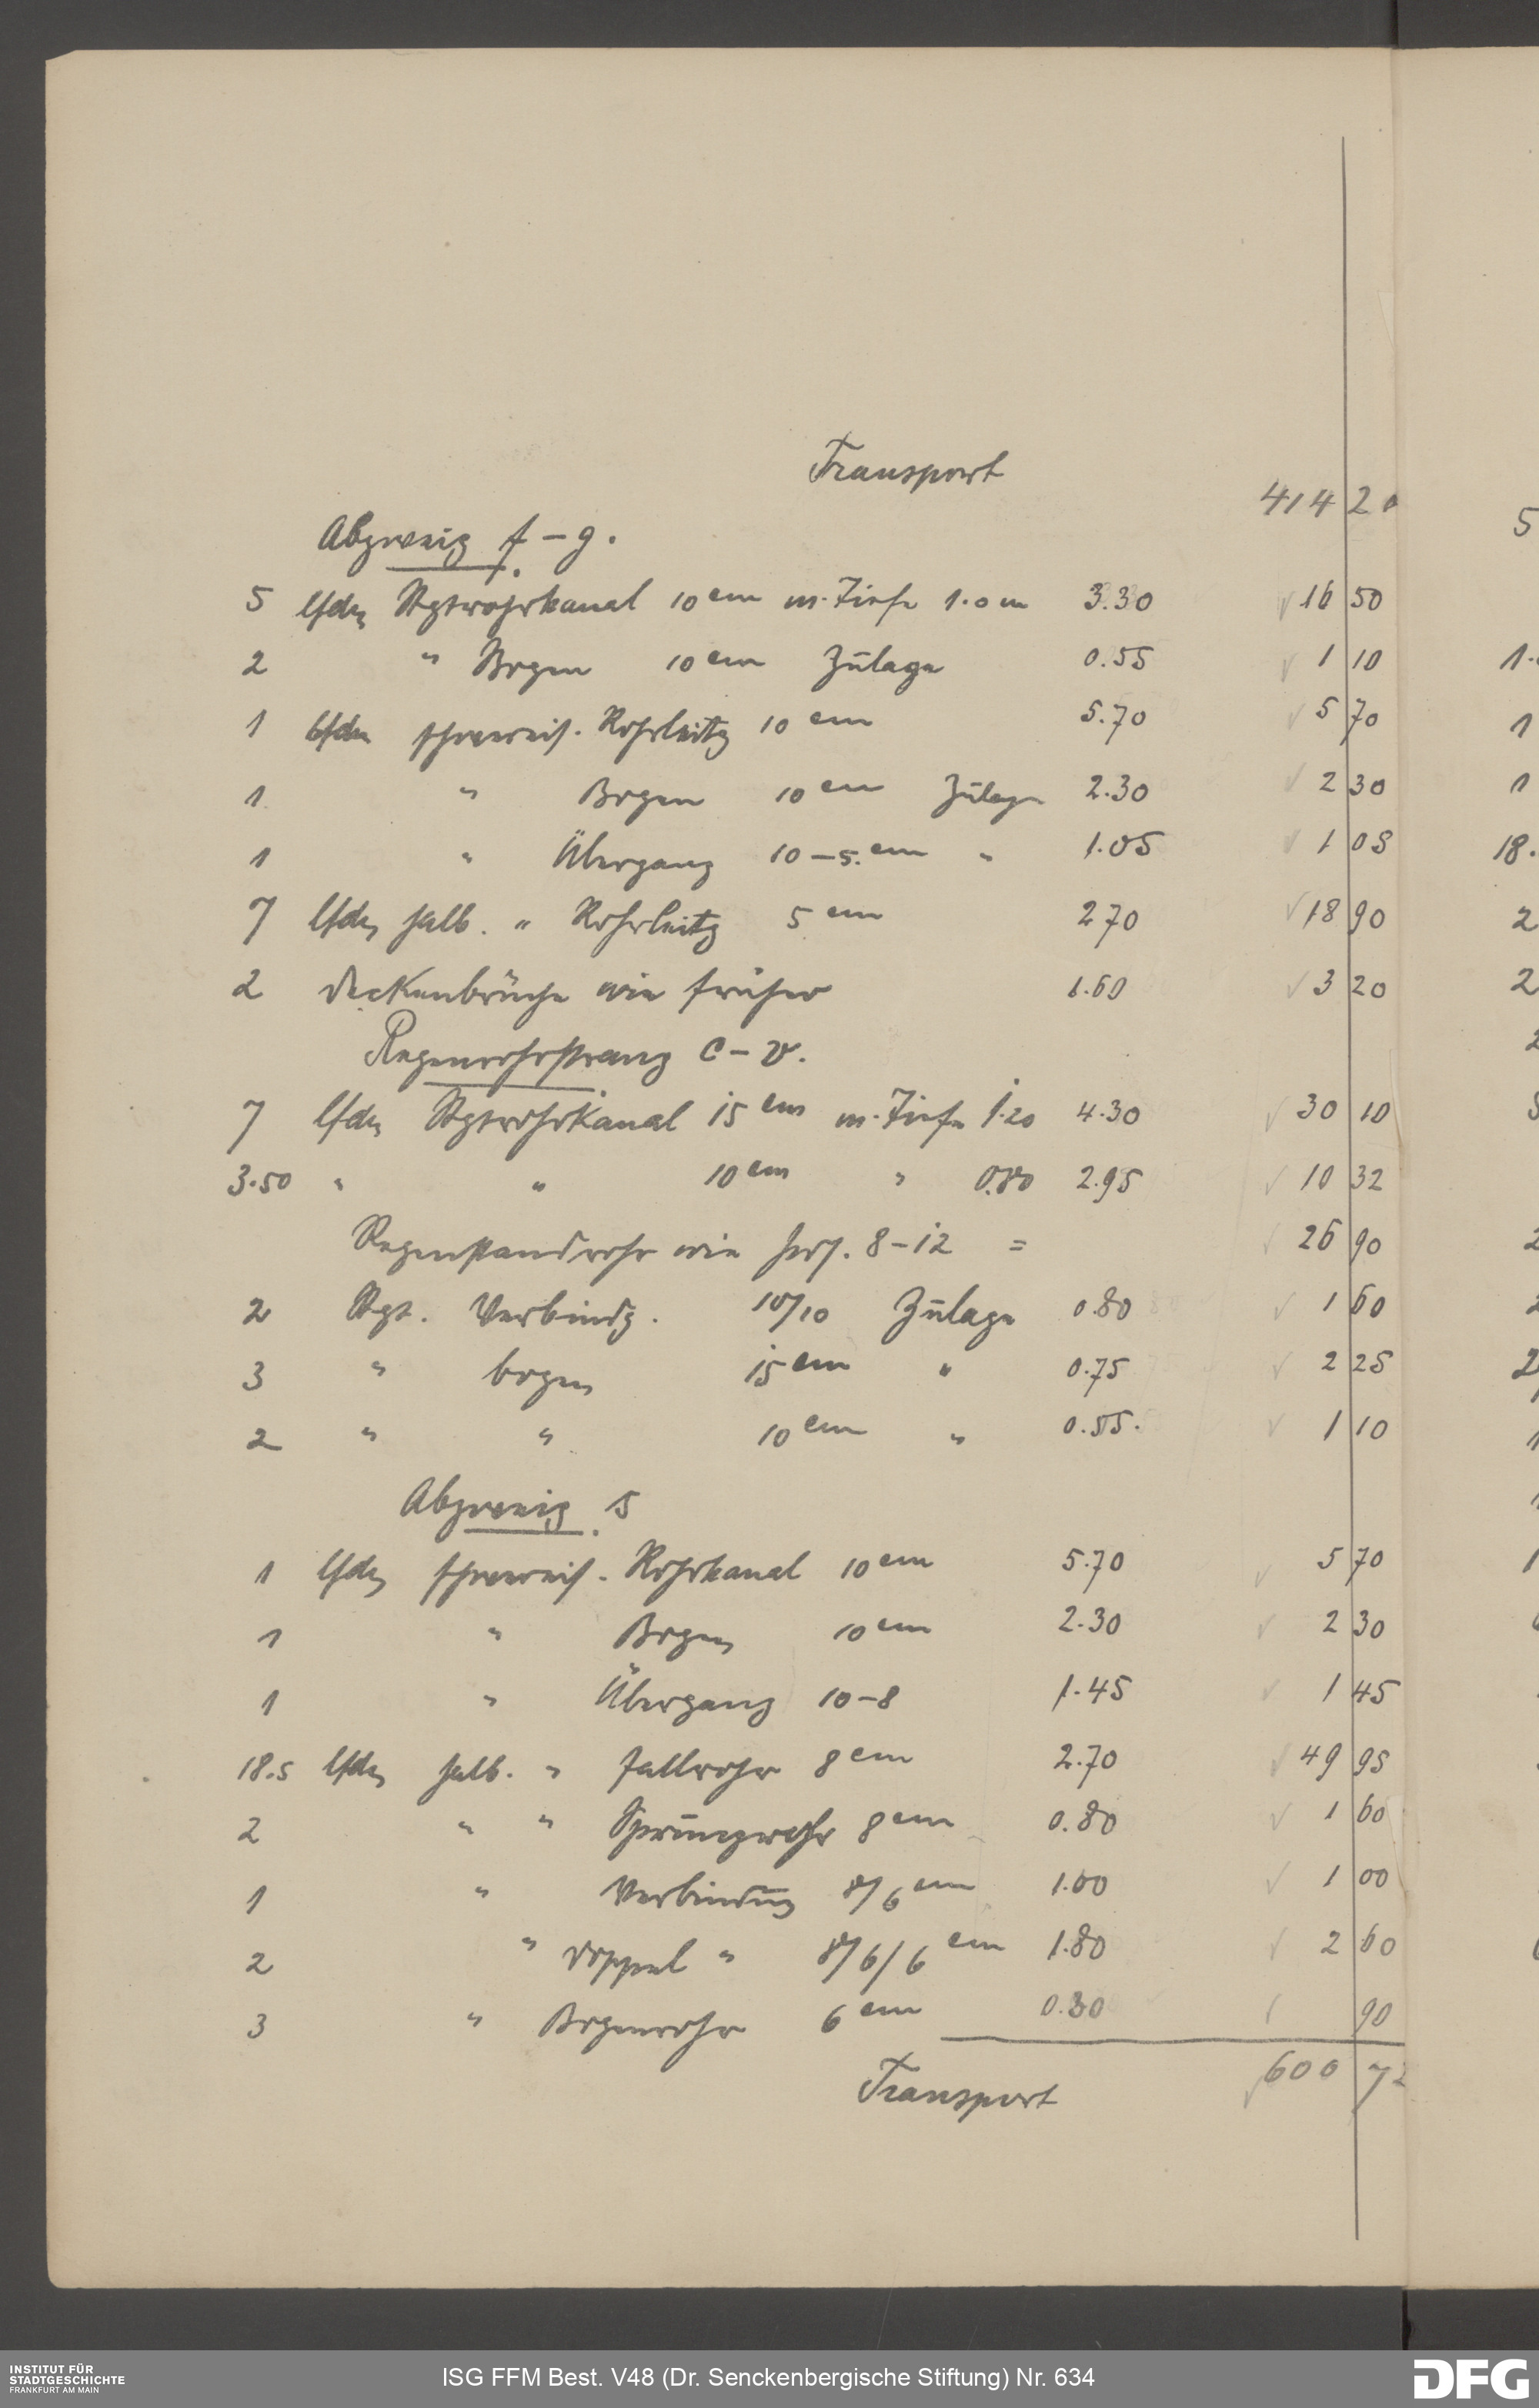 Transport 414 20
Abzweig f – g.
5 lfdm Stgtrohrkanal 10 cm m. Tiefe 1.0 m 3.30 16 50
2 " Bogen 10 cm Zulage 0.55 1 10
1 lfdm schwereis. Rohrleitg 10 cm 5.70 5 70
1 " Bogen 10 cm Zulage 2.30 2 30
1 " Übergang 10–5 cm " 1.05 1 05
7 lfdm halb. " Rohrleitg 5 cm 2 70 18 90
2 Deckenbrüche wie früher 1.60 3 20
Regenrohrstrang C – v.
7 lfdm Stgtrohrkanal 15 cm m. Tiefe 1.20 4.30 30 10
3.50 " " 10 cm " 0.80 2.95 10 32
Regenstandrohr wie 8–12 = 26 90
2 Stgt. Verbindg. 10/10 Zulage 0.80 1 60
3 " bogen 15 cm " 0.75 2 25
2 " " 10 cm " 0.55. 1 10
Abzweig 5
1 lfdm schwereis. Rohrkanal 10 cm 5.70 5 70
1 " Bogen 10 cm 2.30 2 30
1 " Übergang 10–8 1.45 1 45
18.5 lfdm halb. " Fallrohr 8 cm 2.70 49 95
2 " " Sprungrohr 8 cm 0.80 1 60
1 " Verbindung 8/6 cm 1.00 1 00
2 " Doppel " 8/6/6 cm 1.80 2 60
3 " Bogenrohr 6 cm 0.30 90
Transport 600 72
5
1
1
18.
2
2
INSTITUT FÜR
STADTGESCHICHTE
FRANKFURT AM MAIN
ISG FFM Best. V48 (Dr. Senckenbergische Stiftung) Nr. 634
DFG